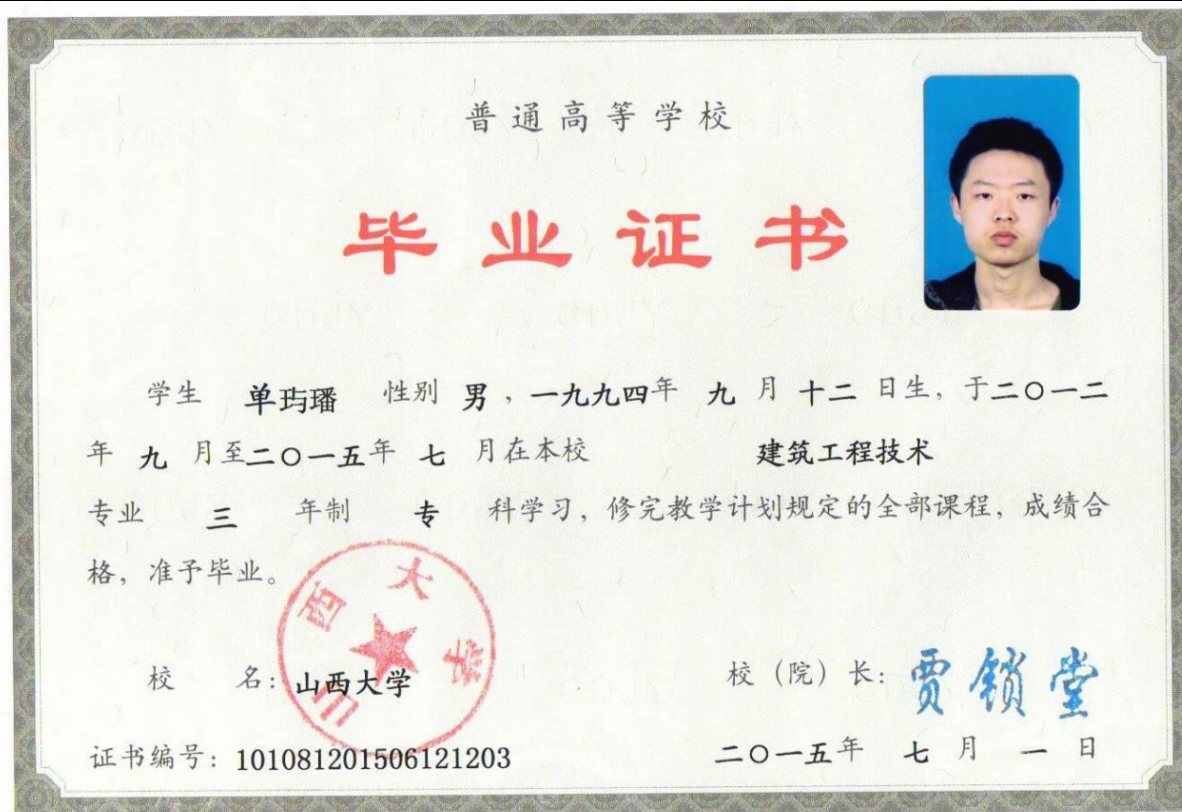 普通高等学校
毕业证书
学生 单玙璠 性别 男，一九九四年 九 月 十二 日生，于二〇一二
年 九 月至二〇一五年 七 月在本校 建筑工程技术
专业 三 年制 专 科学习，修完教学计划规定的全部课程，成绩合
格，准予毕业。
山西大学
校 名：山西大学 校（院）长：贾锁堂
证书编号：101081201506121203 二〇一五年 七 月 一 日